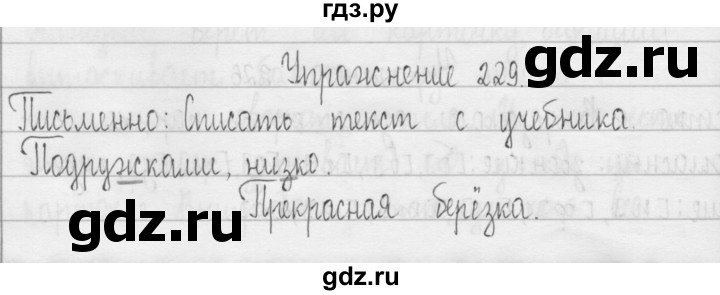 гдз.ру
Упражнение 229.
Письменно: Списать текст с учебника.
Подружками, низко.
Прекрасная берёзка.
gdz.ru
gdz.ru
gdz.ru
gdz.ru